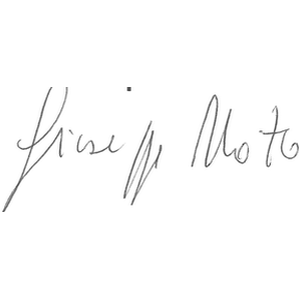 Giuseppe Moto